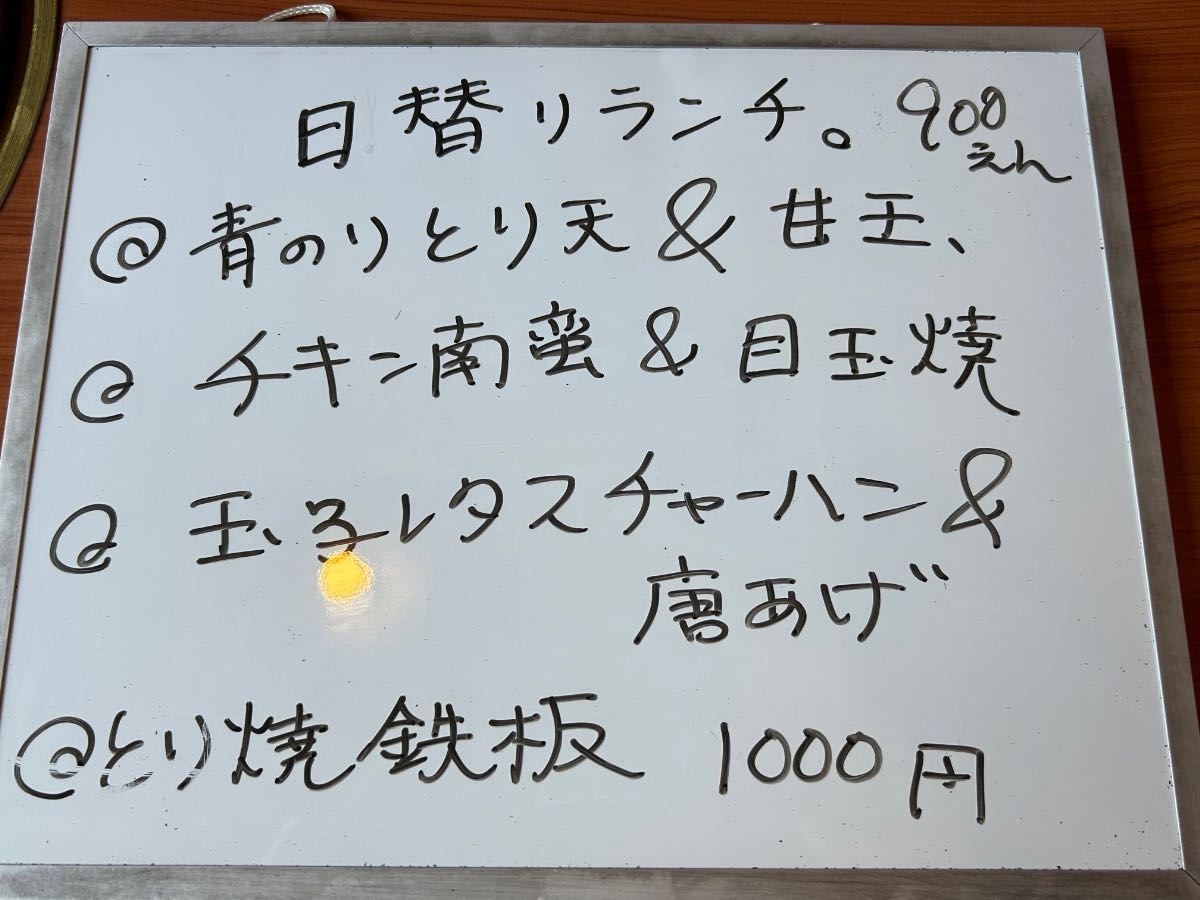 日替りランチ。900えん
@青のりとり天&甘玉、
@チキン南蛮&目玉焼
@玉子レタスチャーハン&
唐あげ
@とり焼鉄板 1000円